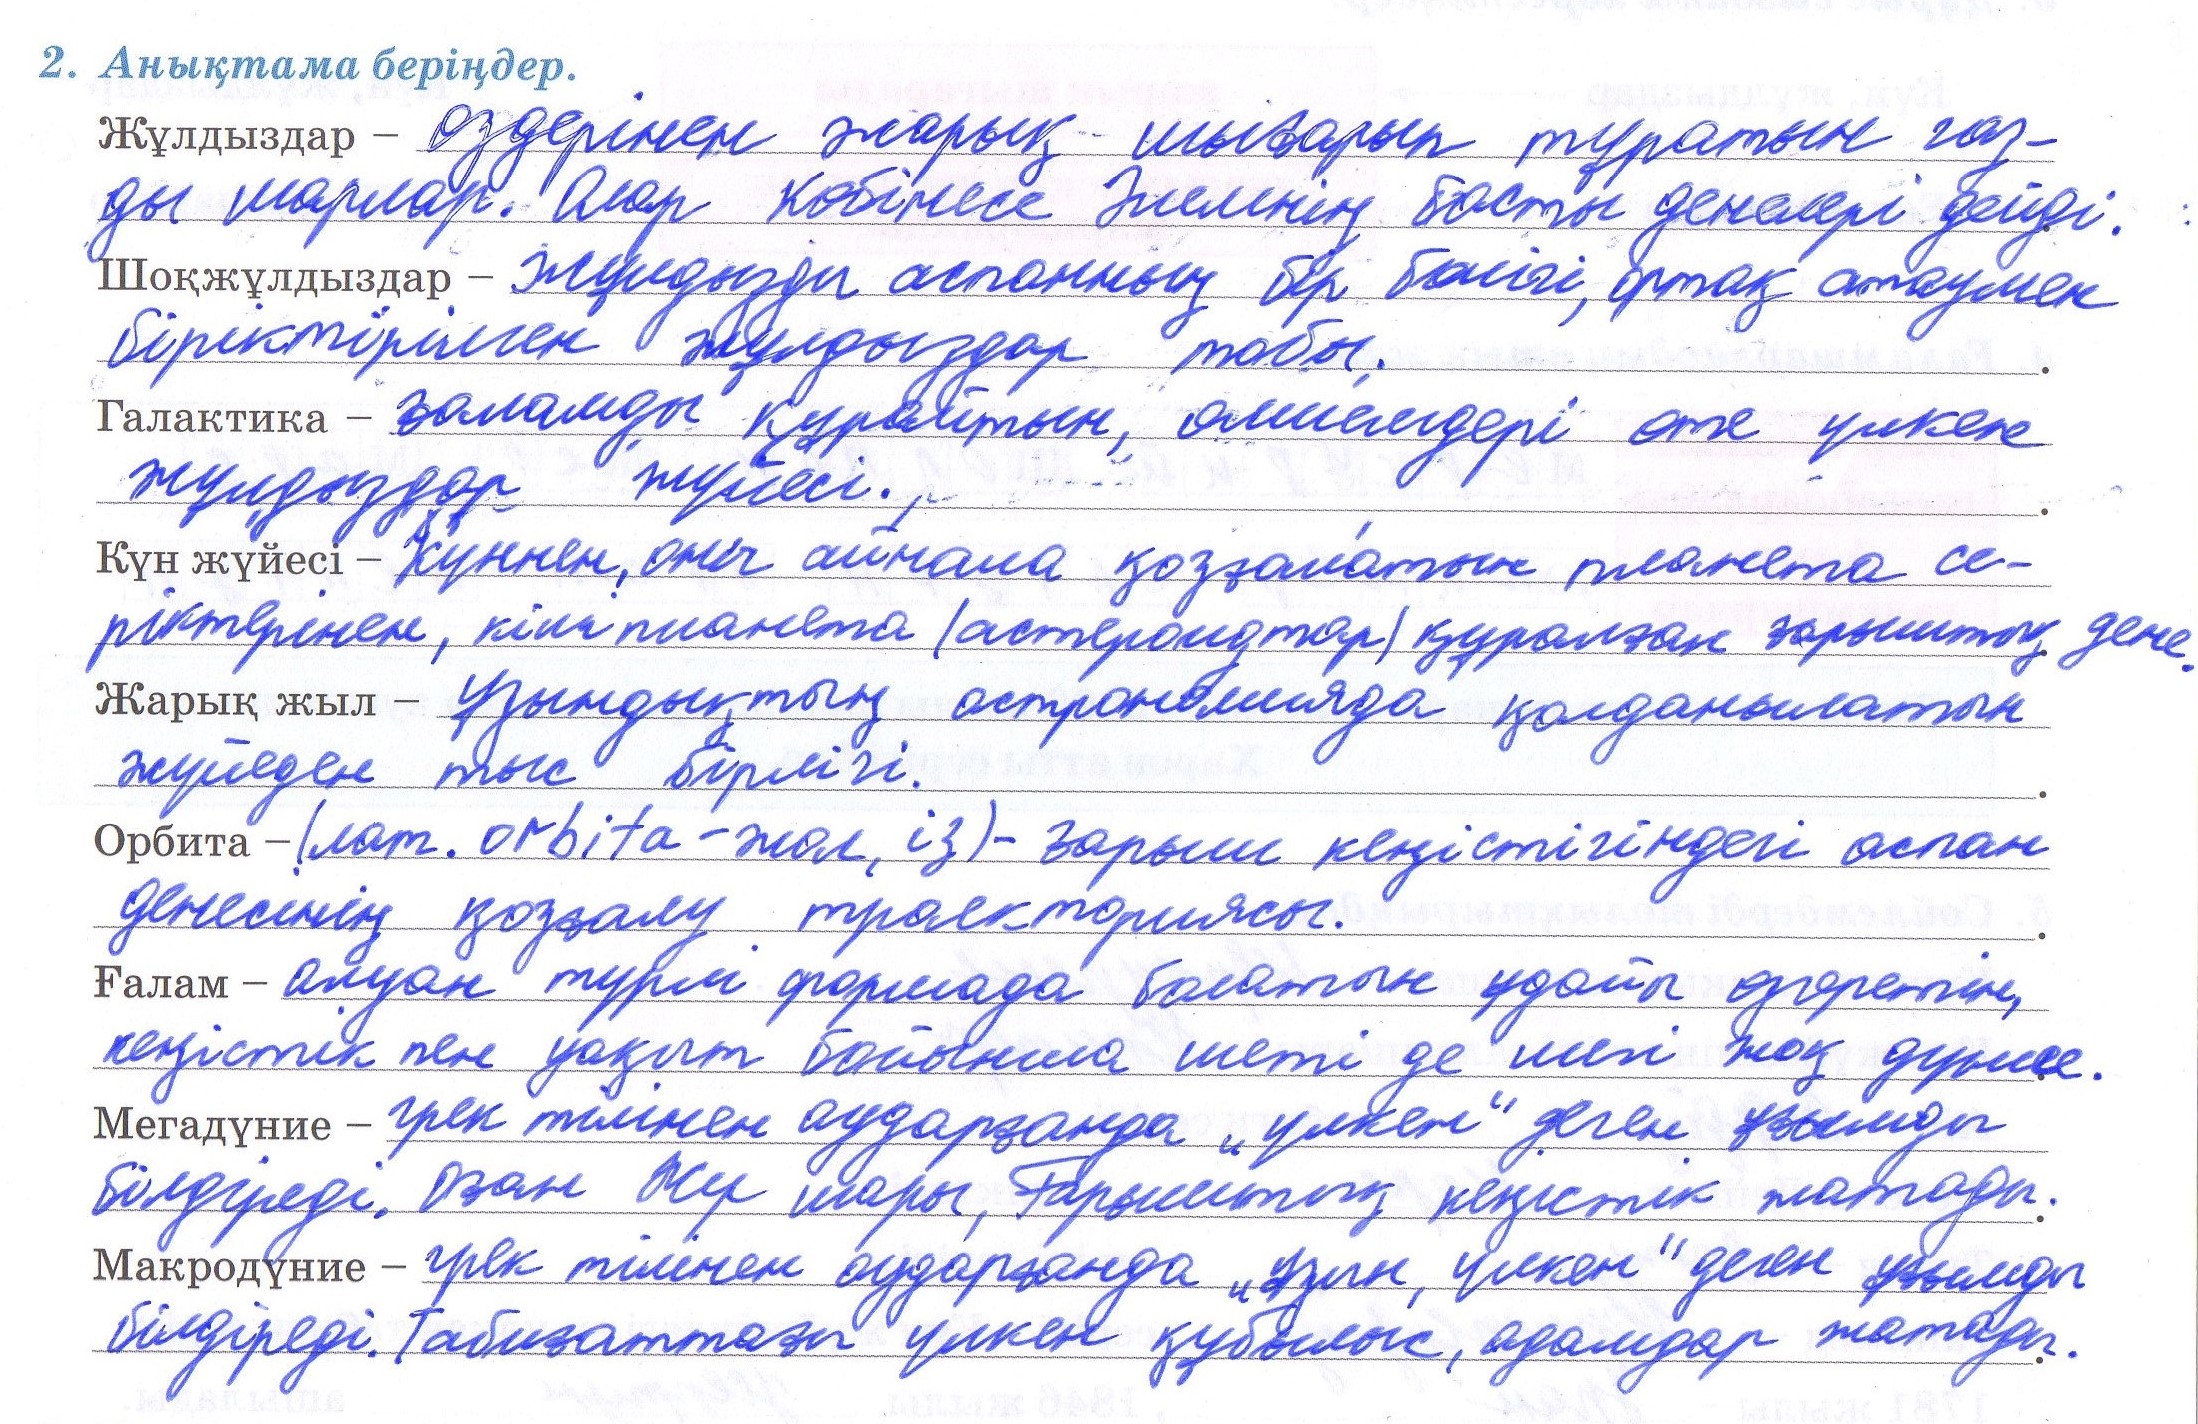 2. Анықтама беріңдер.
Жұлдыздар – өздерінен жарық шығарып тұратын газ-
ды шарлар. Олар көбінесе Әлемнің басты денелері дейді.
Шоқжұлдыздар – Жұлдызды аспанның бір бөлігі, ортақ атаумен
біріктірілген жұлдыздар тобы.
Галактика – ғаламды құрайтын, өлшемдері өте үлкен
жұлдыздар жүйесі.
Күн жүйесі – Күннен, оны айнала қозғалатын планета се-
ріктерінен, кіші планета (астероидтар) құралған ғарыштық дене.
Жарық жыл – ұзындықтың астрономияда қолданылатын
жүйеден тыс бірлігі.
Орбита – (лат. orbita – жол, із) – ғарыш кеңістігіндегі аспан
денесінің қозғалу траекториясы.
Ғалам – алуан түрлі формада болатын ұдайы өзгеретін,
кеңістік пен уақыт бойынша шеті де шегі жоқ дүние.
Мегадүние – грек тілінен аударғанда „үлкен“ деген ұғымды
білдіреді. Оған Жер шары, Ғарыштық кеңістік жатады.
Макродүние – грек тілінен аударғанда „ұзын, үлкен“ деген ұғымды
білдіреді. Табиғаттағы үлкен құбылыс, адамдар жатады.